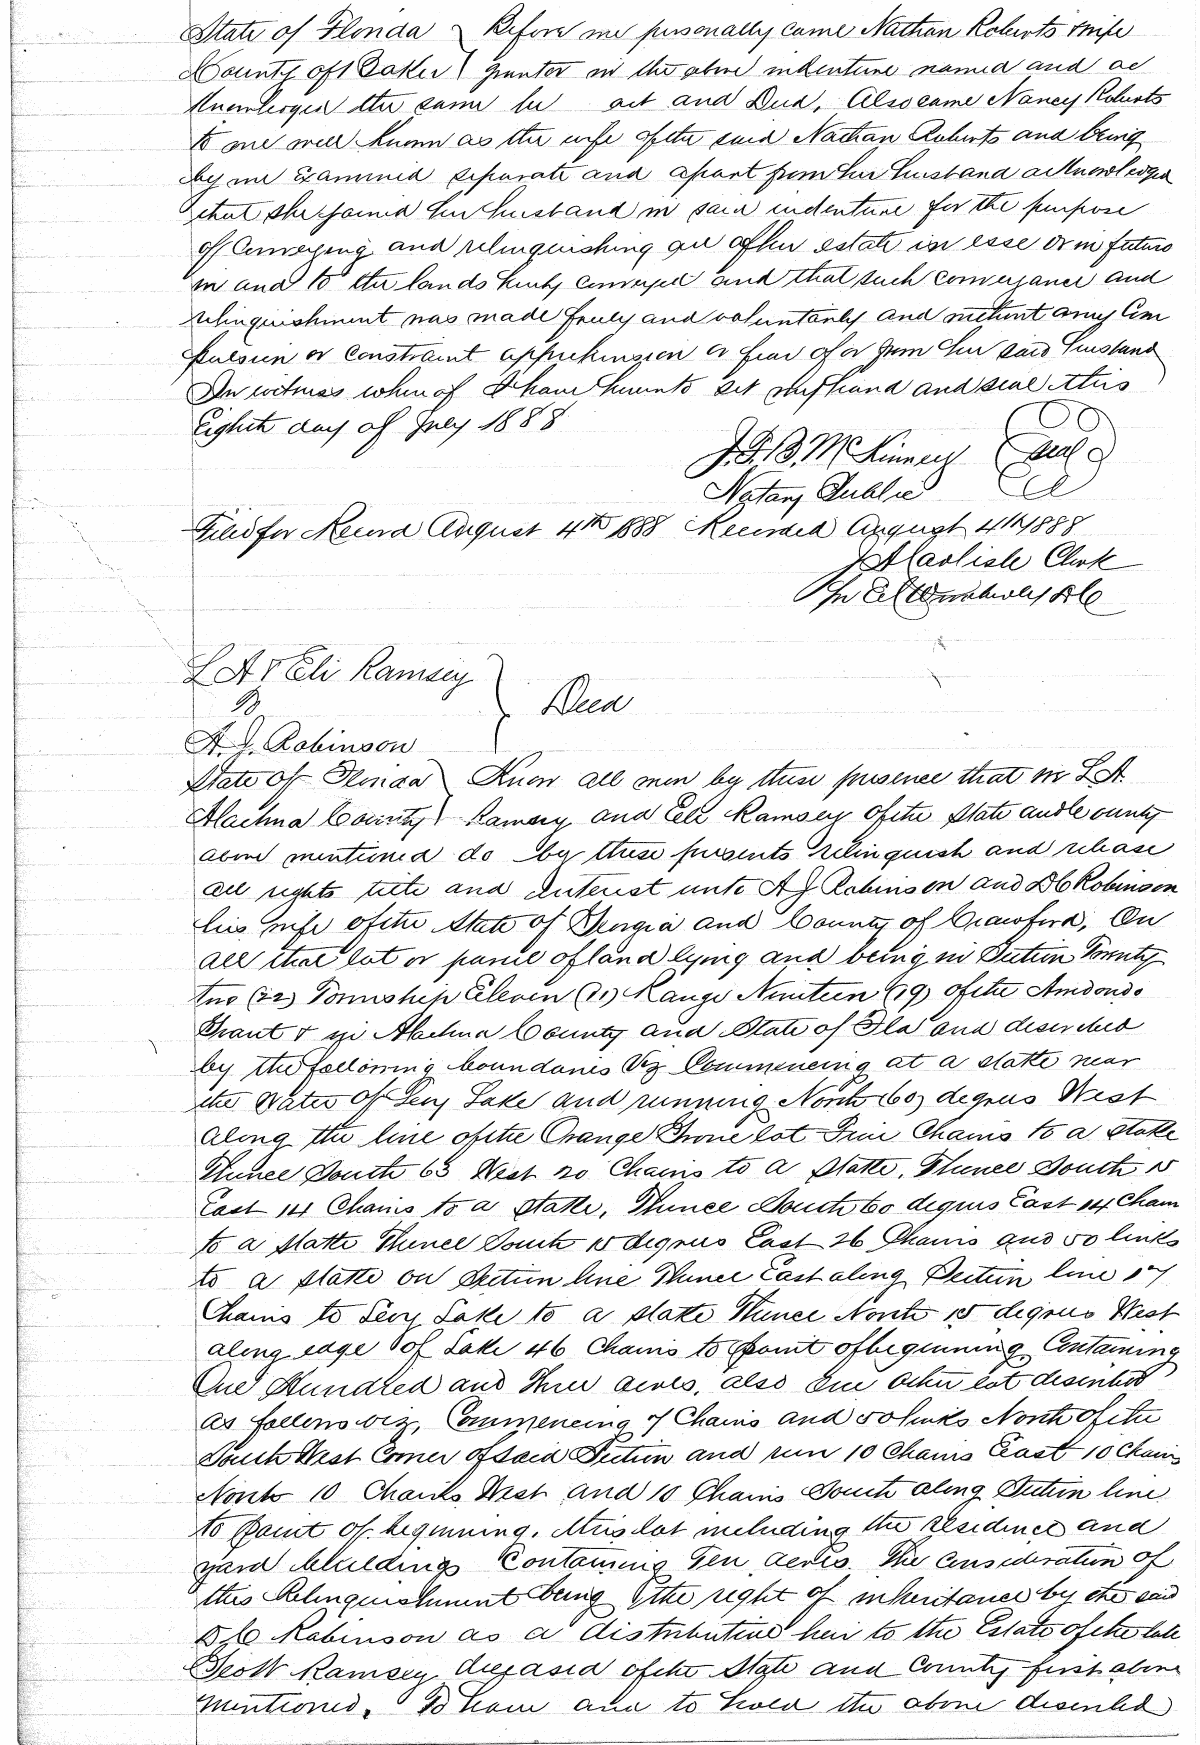 State of Florida } Before me personally came Nathan Roberts & wife
County of Baker } grantor in the above indenture named and ac
knowledged the same be act and Deed, Also came Nancy Roberts
to me well known as the wife of the said Nathan Roberts and being
by me examined separate and apart from her husband acknowledged
that she joined her husband in said indenture for the purpose
of Conveying and relinquishing all of her estate in esse or in futuro
in and to the lands hereby conveyed and that such conveyance and
relinquishment was made freely and voluntarily and without any Com
pulsion or constraint apprehension or fear of or from her said husband
In witness whereof I have hereunto set my hand and seal this
Eighth day of July 1888
J. F. B. McKinney (Seal)
Notary Public
Filed for Record August 4th 1888 Recorded August 4th 1888
J A Carlisle Clerk
Pr DC
L A & Eli Ramsey
To } Deed
A. J. Robinson
State of Florida } Know all men by these presence that we L A.
Alachua County } Ramsey and Eli Ramsey of the State and County
above mentioned do by these presents relinquish and release
all rights title and Interest unto A J Robinson and D C Robinson
his wife of the State of Georgia and County of Crawford, On
all that lot or parcel of land lying and being in Section Twenty
two (22) Township Eleven (11) Range Nineteen (19) of the Arredondo
Grant & in Alachua County and State of Fla and described
by the following boundaries Viz Commencing at a stake near
the Water of Levy Lake and running North (60) degrees West
along the line of the Orange Grove lot Five Chains to a stake
Thence South 63 West 20 Chains to a Stake, Thence South 15
East 14 Chains to a stake, Thence South 60 degrees East 14 Chains
to a stake Thence South 15 degrees East 26 Chains and 50 links
to a stake on Section line Thence East along Section line 17
Chains to Levy Lake to a stake Thence North 15 degrees West
along edge of Lake 46 Chains to point of beginning Containing
One Hundred and Three acres, also One other lot described
as follows viz, Commencing 7 Chains and 50 links North of the
South West Corner of said Section and run 10 Chains East 10 Chains
North 10 Chains West and 10 Chains South along Section line
to point of beginning. this lot including the residence and
yard buildings Containing Ten acres. The consideration of
this Relinquishment being the right of inheritance by the said
D. C. Robinson as a distributive heir to the Estate of the late
Scott Ramsey deceased of the State and County first above
mentioned. To have and to hold the above described